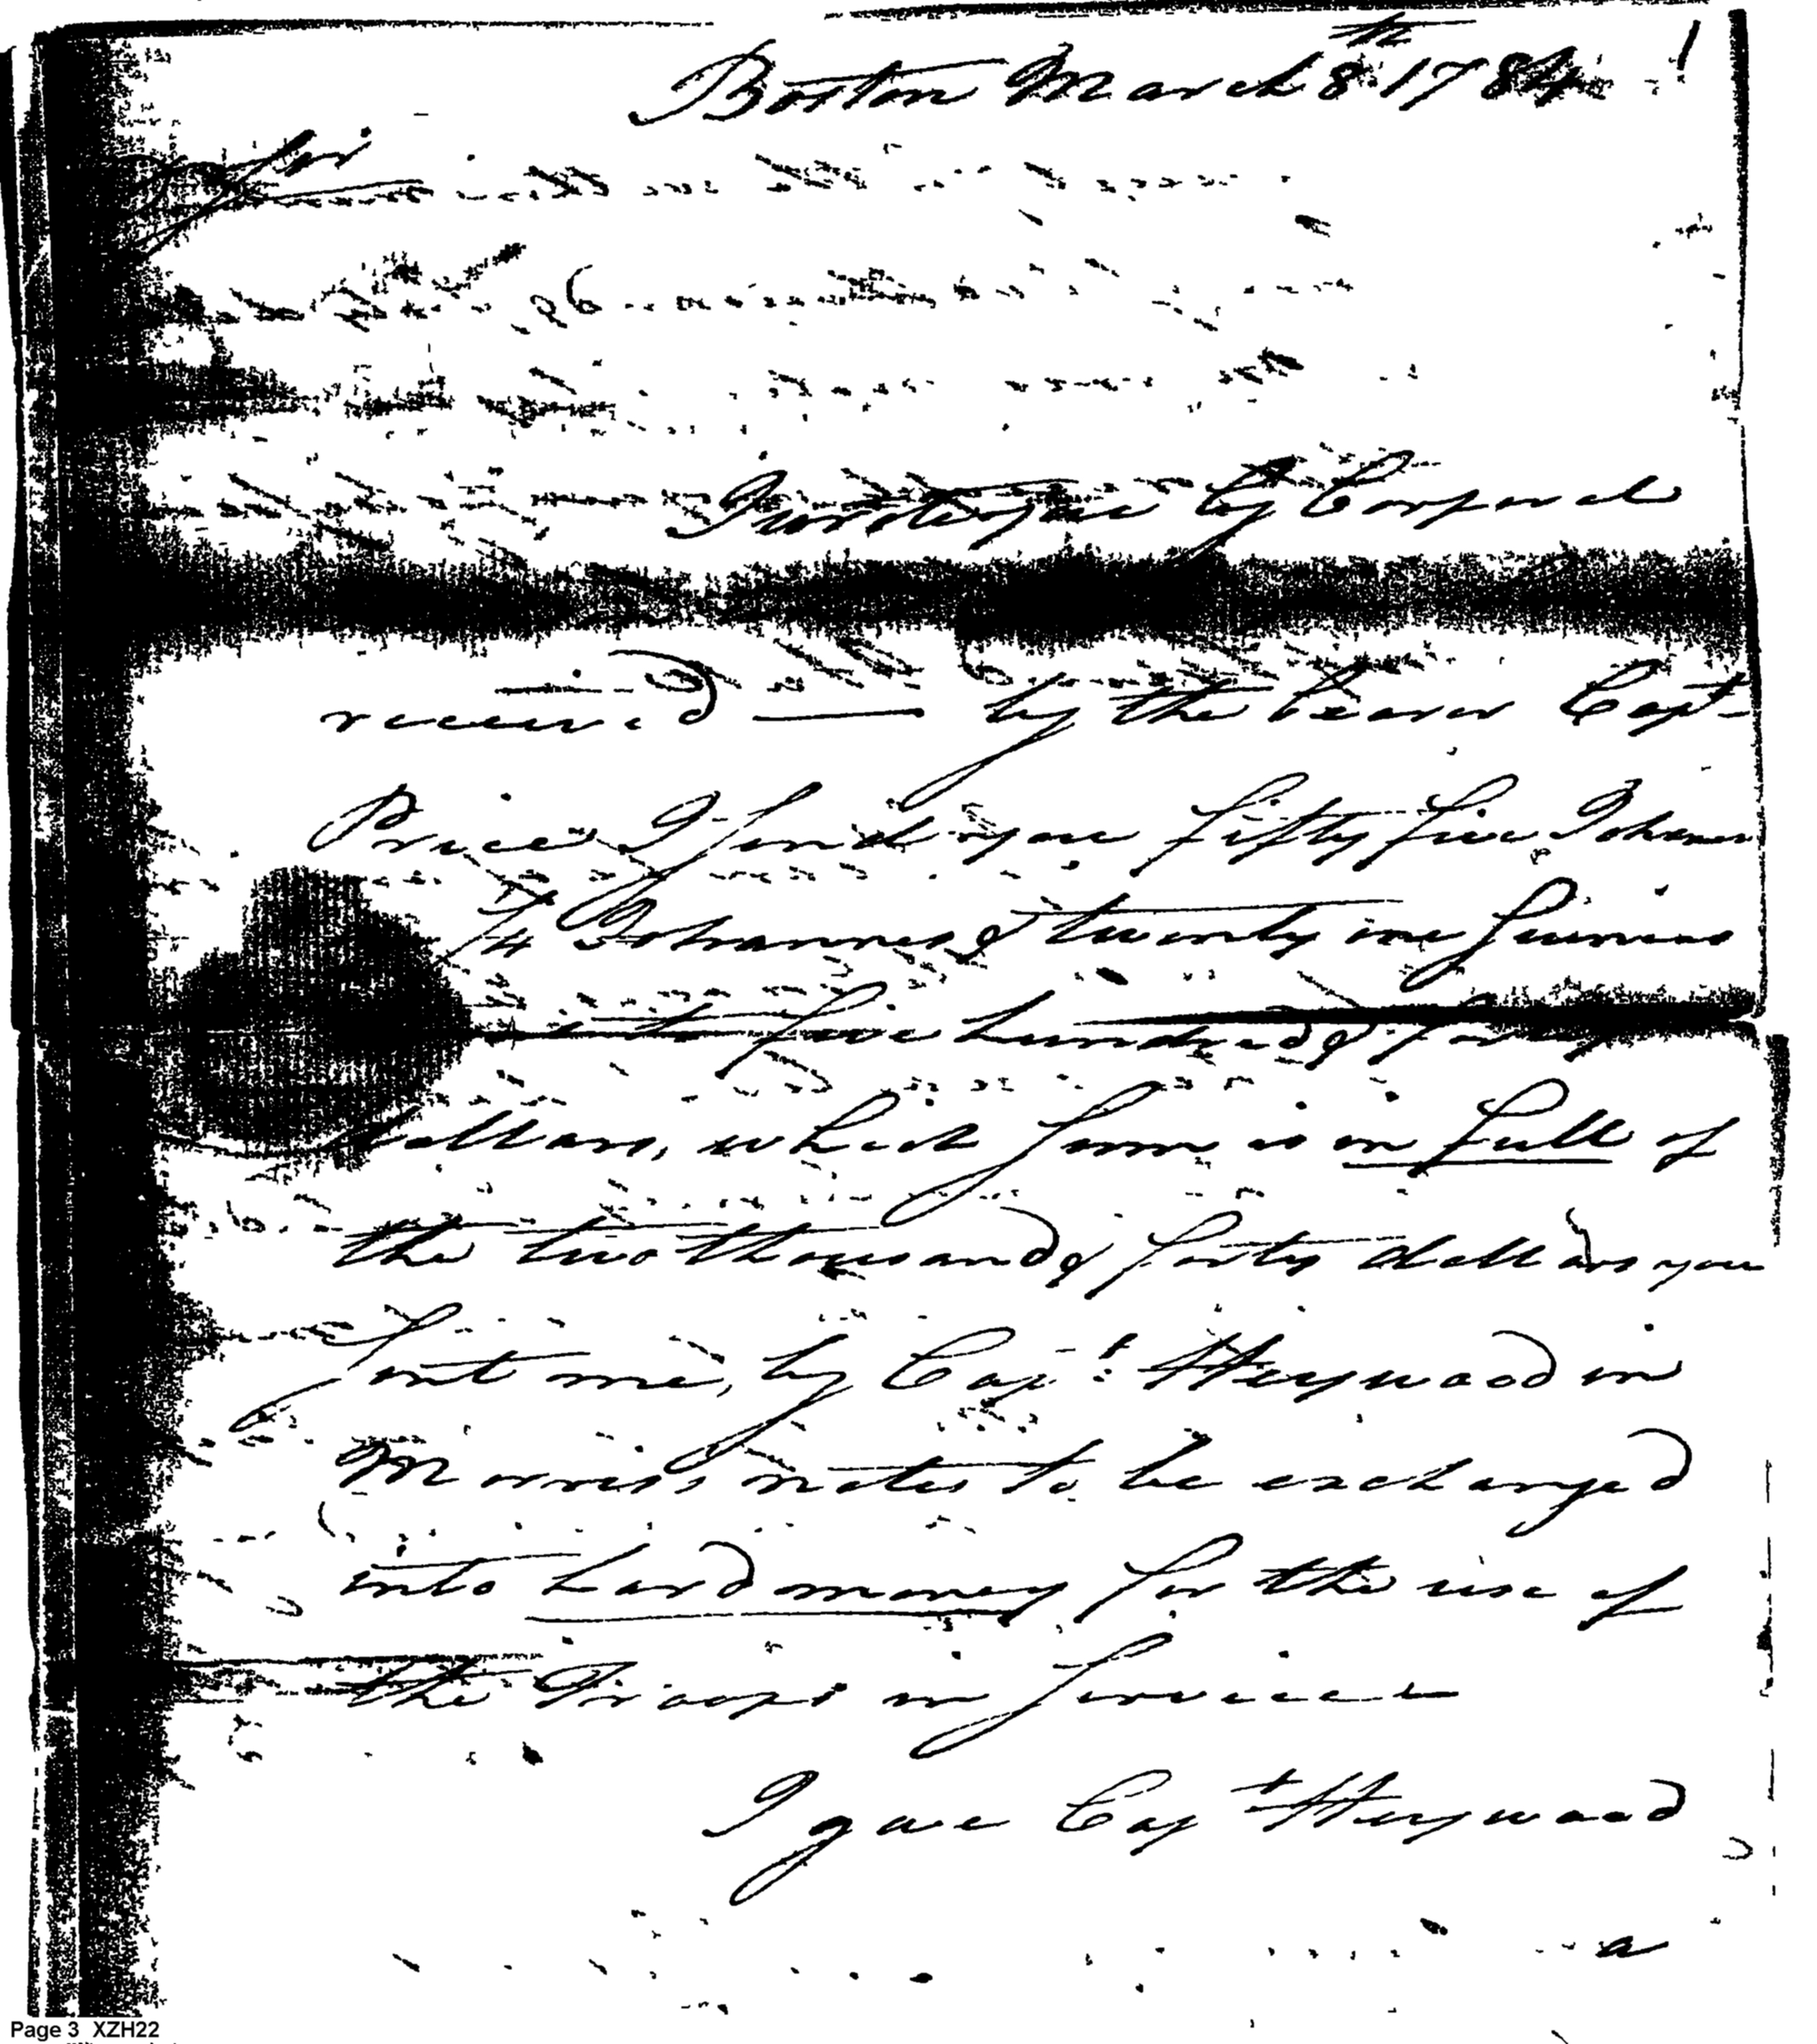 Boston March 8th 1784
Sir
I wrote you by Corporal
received — by the bearer Capt
Price I send you fifty five Johannes
Johannes & twenty one Guineas
five hundred & forty
dollars, which sum is in full of
the two thousand & forty dollars you
sent me, by Capt: Heywood in
Morris's notes to be exchanged
into hard money for the use of
the Troops in Service
I gave Capt Heywood
a
Page 3 XZH22